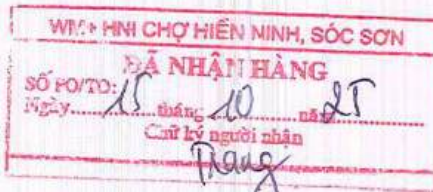 WM+ HNI CHỢ HIỀN NINH, SÓC SƠN
ĐÃ NHẬN HÀNG
SỐ PO/TO:
Ngày 15 tháng 10 năm 25
Chữ ký người nhận
Trang